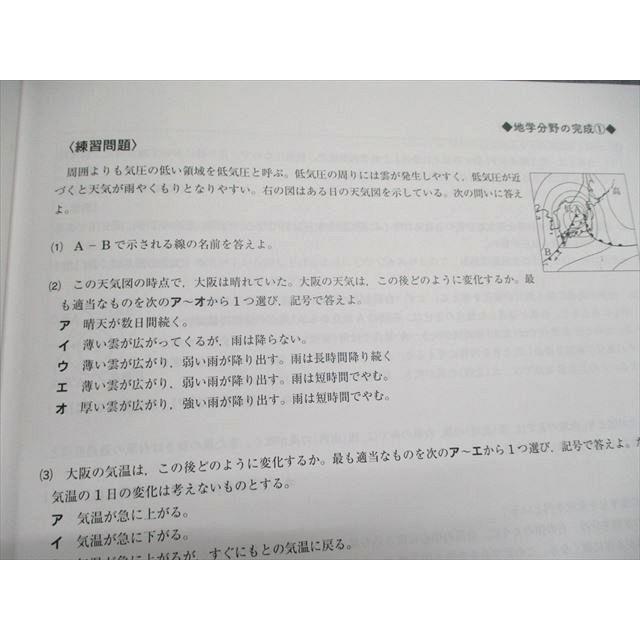 ◆地学分野の完成①◆
〈練習問題〉
周囲よりも気圧の低い領域を低気圧と呼ぶ。低気圧の周りには雲が発生しやすく，低気圧が近
づくと天気が雨やくもりとなりやすい。右の図はある日の天気図を示している。次の問いに答え
よ。
低
高
B
(1) A－Bで示される線の名前を答えよ。
(2) この天気図の時点で，大阪は晴れていた。大阪の天気は，この後どのように変化するか。最
も適当なものを次のア～オから1つ選び，記号で答えよ。
ア 晴天が数日間続く。
イ 薄い雲が広がってくるが，雨は降らない。
ウ 薄い雲が広がり，弱い雨が降り出す。雨は長時間降り続く
エ 薄い雲が広がり，弱い雨が降り出す。雨は短時間でやむ。
オ 厚い雲が広がり，強い雨が降り出す。雨は短時間でやむ。
(3) 大阪の気温は，この後どのように変化するか。最も適当なものを次のア～エから1つ選び，記号で答えよ。
気温の1日の変化は考えないものとする。
ア 気温が急に上がる。
イ 気温が急に下がる。
気温が急に上がるが，すぐにもとの気温に戻る。